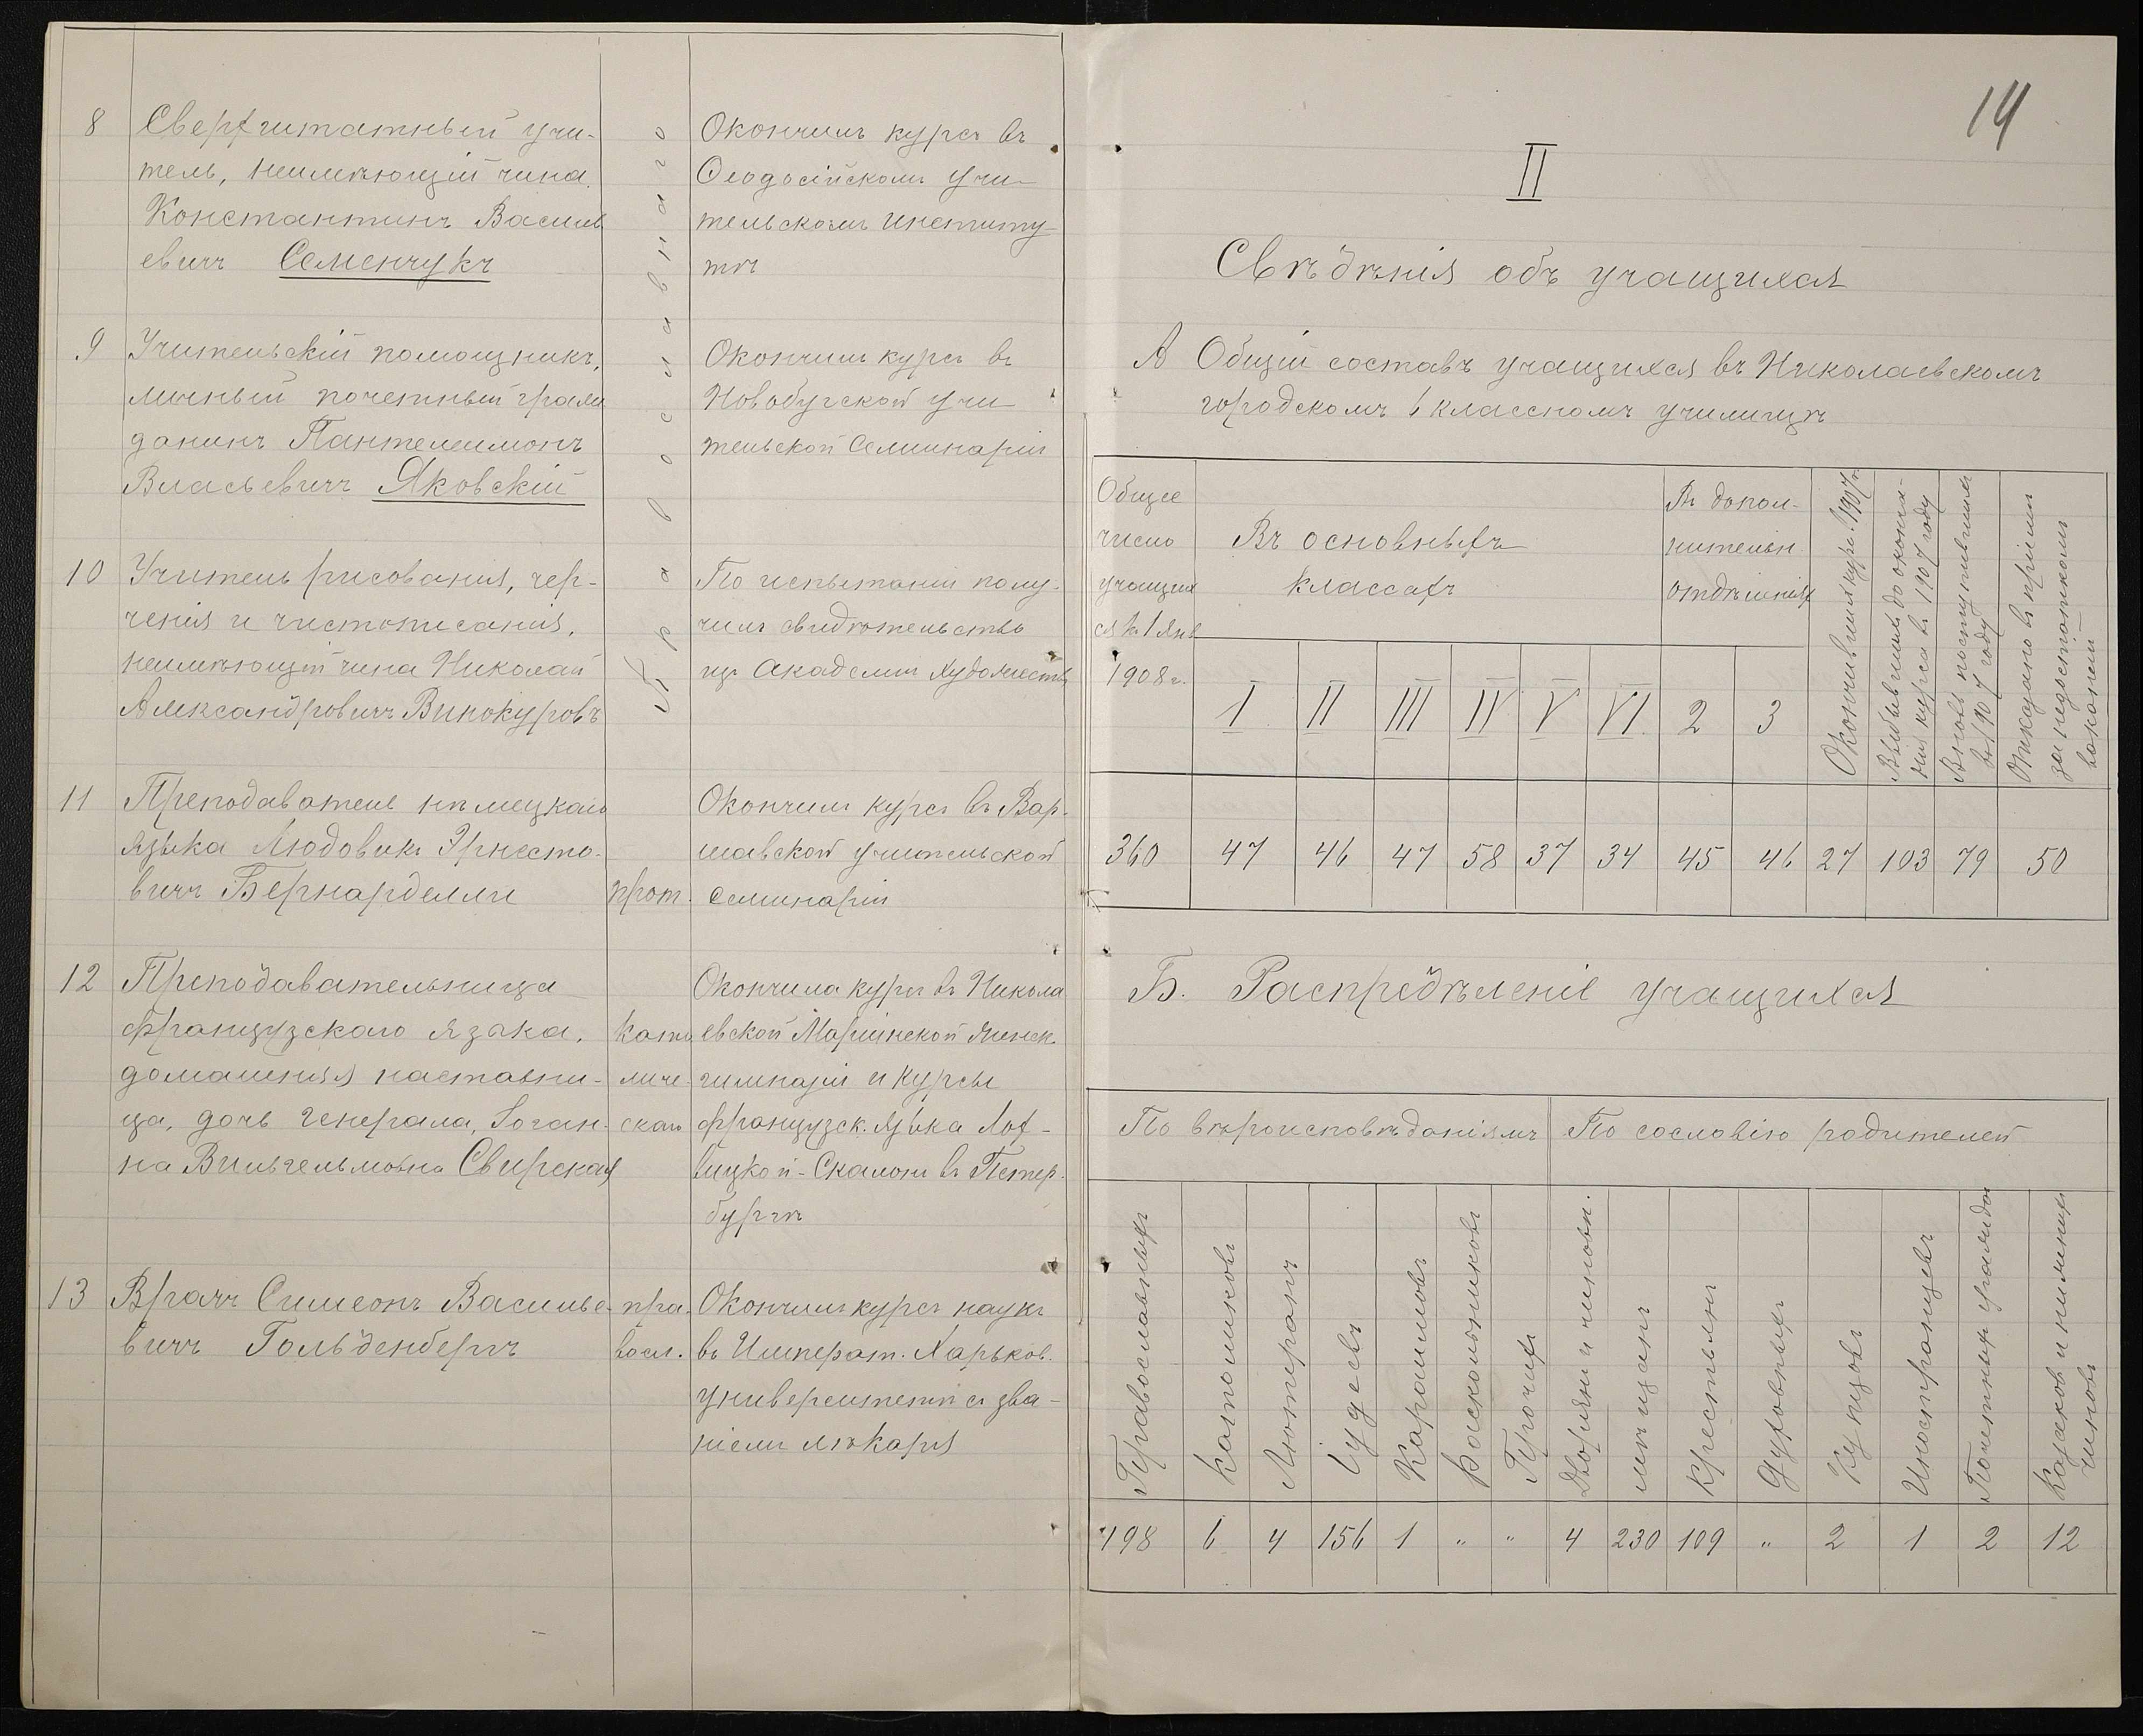 8
Сверхштатный учи-
тель, неимѣющій чина
Константинъ Василь
евичъ Семенчукъ
православнаго
Окончилъ курсъ въ
Ѳеодосійскомъ учи-
тельскомъ институ-
тѣ
9
Учительскій помощникъ,
личный почетный граж
данинъ Пантелеимонъ
Власьевичъ Яковскій
Окончилъ курсъ въ
Новобугской учи
тельской Семинаріи
10
Учитель рисованія, чер-
ченія и чистописанія,
неимѣющій чина Николай
Александровичъ Винокуровъ
По испытаніи полу-
чилъ свидѣтельство
изъ Академіи Художествъ
11
Преподаватель нѣмецкаго
языка Людовикъ Эрнесто-
вичъ Бернарделли
прот.
Окончилъ курсъ въ Вар-
шавской учительской
семинаріи
12
Преподавательница
французскаго языка,
домашняя наставни-
ца, дочь генерала, Іоган-
на Вильгельмовна Свирская
като
личе-
скаго
Окончила курсъ въ Никола
евской Маріинской женск.
гимназіи и курсы
французск. языка Лох-
вицкой-Скалонъ въ Петер-
бургѣ
13
Врачъ Симеонъ Василье-
вичъ Гольденбергъ
пра-
восл.
Окончилъ курсъ наукъ
въ Императ. Харьков.
университетѣ съ зва-
ніемъ лѣкаря
14
II
Свѣдѣнія объ учащихся
А Общій составъ учащихся въ Николаевскомъ
городскомъ 6 классномъ училищѣ
Общее
число
учащих
ся къ 1 Янв
1908 г.
Въ основныхъ
классахъ
Въ допол-
нительн
отдѣленіях
Окончившихъ курсъ въ 1907 г.
Выбывшихъ до оконча-
нія курса въ 1907 году
Вновь поступившихъ
въ 1907 году
Отказано въ пріемѣ
за недостаткомъ
вакансій
I II III IV V VI 2 3
360 47 46 47 58 37 34 45 46 27 103 79 50
Б. Распредѣленіе учащихся
По вѣроисповѣданіямъ
По сословію родителей
Православныхъ
Католиковъ
Лютеранъ
Іудеевъ
Караимовъ
Раскольниковъ
Прочихъ
Дворянъ и чиновн.
мѣщанъ
крестьянъ
духовныхъ
Купцовъ
Иностранцевъ
Почетныхъ граждан
Казаков и нижнихъ
чиновъ
198 6 4 156 1 " " 4 230 109 " 2 1 2 12